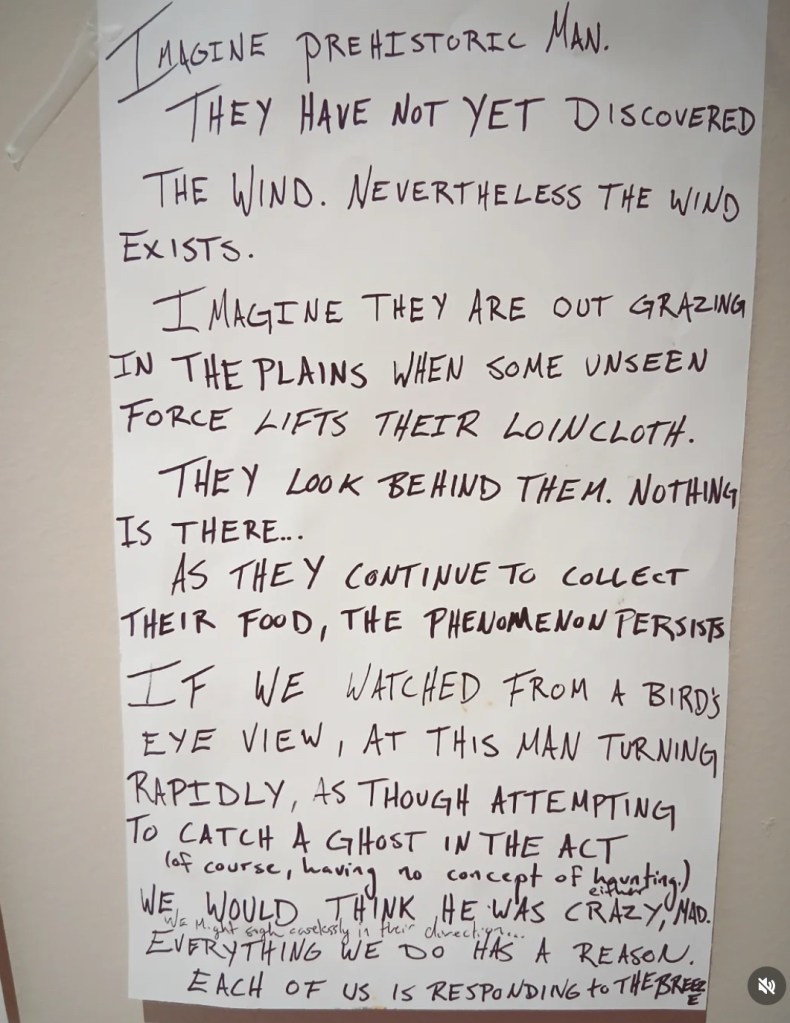 IMAGINE PREHISTORIC MAN.
THEY HAVE NOT YET DISCOVERED
THE WIND. NEVERTHELESS THE WIND
EXISTS.
IMAGINE THEY ARE OUT GRAZING
IN THE PLAINS WHEN SOME UNSEEN
FORCE LIFTS THEIR LOINCLOTH.
THEY LOOK BEHIND THEM. NOTHING
IS THERE...
AS THEY CONTINUE TO COLLECT
THEIR FOOD, THE PHENOMENON PERSISTS
IF WE WATCHED FROM A BIRD'S
EYE VIEW, AT THIS MAN TURNING
RAPIDLY, AS THOUGH ATTEMPTING
TO CATCH A GHOST IN THE ACT
(of course, having no concept of haunting.)
either
WE WOULD THINK HE WAS CRAZY, MAD.
We Might sigh carelessly in their direction...
EVERYTHING WE DO HAS A REASON.
EACH OF US IS RESPONDING to THE BREEZE